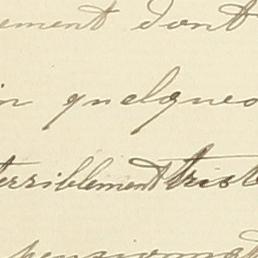 ement dont
in quelques
terriblement triste
pensionnat